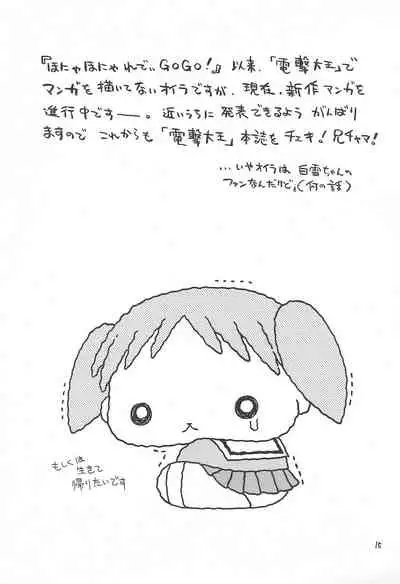 『ほにゃほにゃれでぃGoGo!』以来、「電撃大王」で
マンガを描いてないオイラですが、現在、新作マンガを
進行中です——。近いうちに発表できるよう がんばり
ますので これからも「電撃大王」本誌をチェキ!兄チャマ!
…いやオイラは 白雪ちゃんの
ファンなんだけど。(何の話)
もしくは
生きて
帰りたいです
15